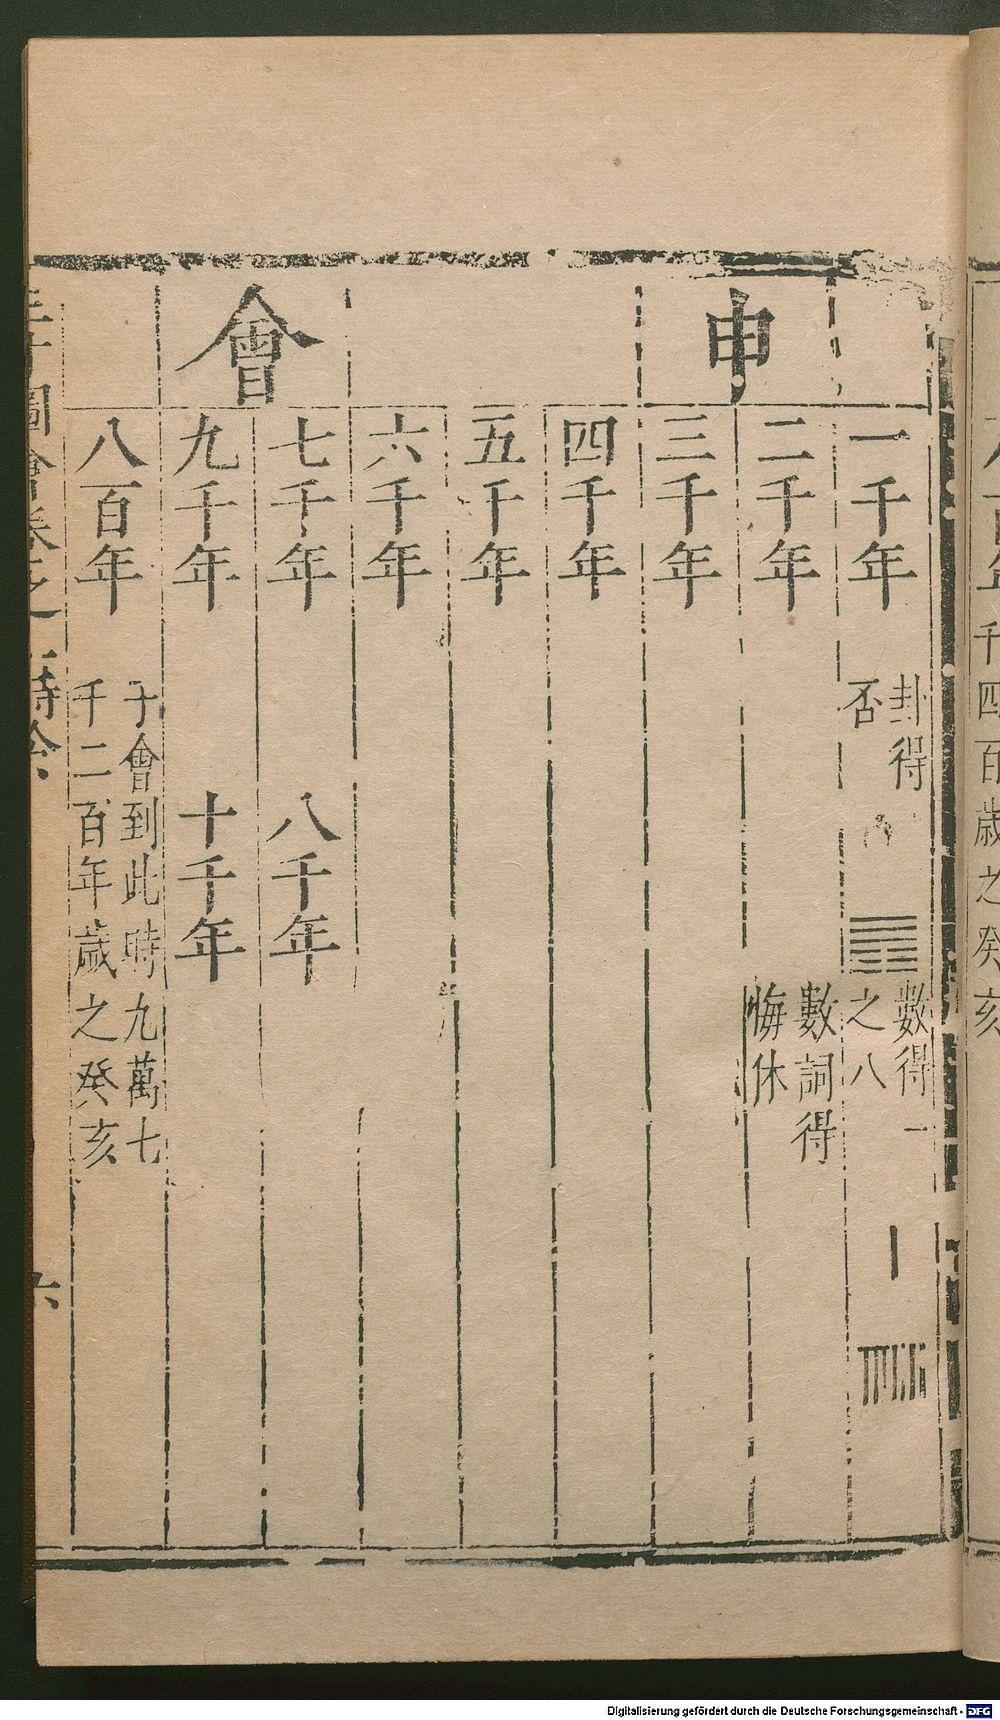 申會
一千年
卦得
否
數得一
之八
二千年
數詞得
悔休
三千年
四千年
五千年
六千年
七千年
八千年
九千年
十千年
八百年
子會到此時九萬七
千二百年歲之癸亥
圖會卷之
時令
六
百年
千四百歲之癸亥
Digitalisierung gefördert durch die Deutsche Forschungsgemeinschaft - DFG